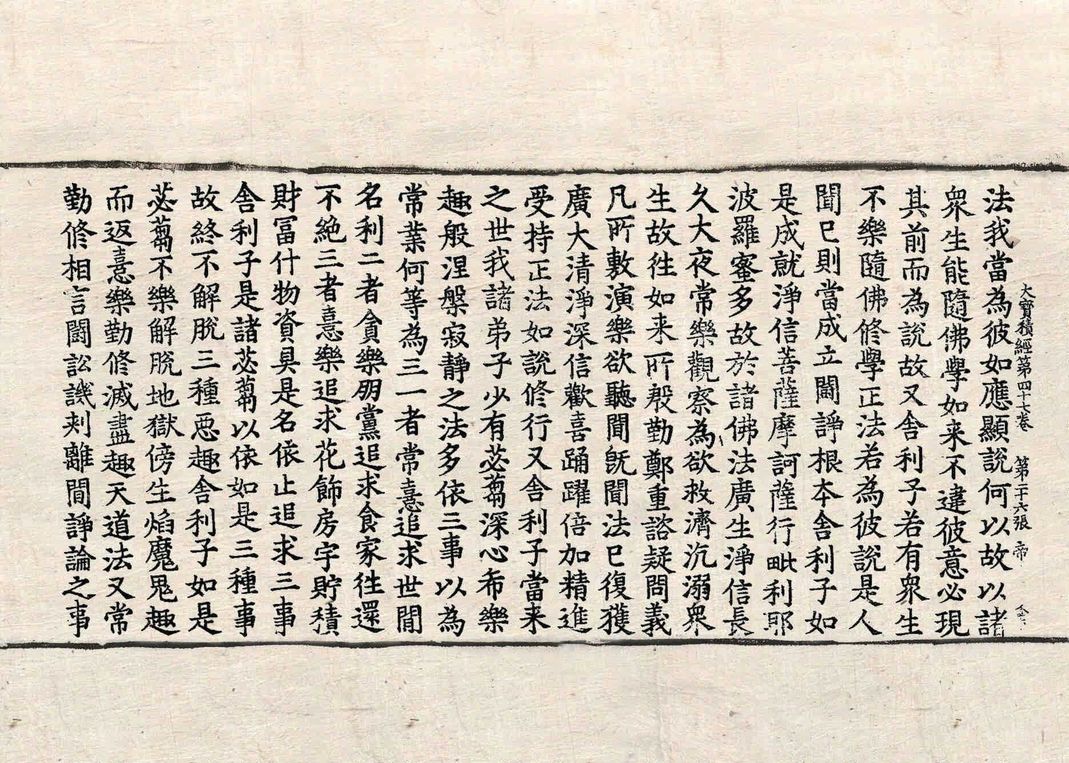 大寶積經第四十七卷 第二十六張 帝
法我當為彼如應顯說何以故以諸
衆生能隨佛學如来不違彼意必現
其前而為說故又舍利子若有衆生
不樂隨佛修學正法若為彼說是人
聞已則當成立鬪諍根本舍利子如
是成就淨信菩薩摩訶薩行毗利耶
波羅蜜多故於諸佛法廣生淨信長
久大夜常樂觀察為欲救濟沉溺衆
生故往如来所殷勤鄭重諮疑問義
凡所敷演樂欲聽聞旣聞法已復獲
廣大清淨深信歡喜踊躍倍加精進
受持正法如說修行又舍利子當来
之世我諸弟子少有苾蒭深心希樂
趣般涅槃寂靜之法多依三事以為
常業何等為三一者常憙追求世間
名利二者貪樂朋黨追求食家往還
不絶三者憙樂追求花飾房宇貯積
財冨什物資具是名依止追求三事
舍利子是諸苾蒭以依如是三種事
故終不解脫三種惡趣舍利子如是
苾蒭不樂解脫地獄傍生焰魔鬼趣
而返憙樂勤修滅盡趣天道法又常
勤修相言鬪訟譏刺離間諍論之事